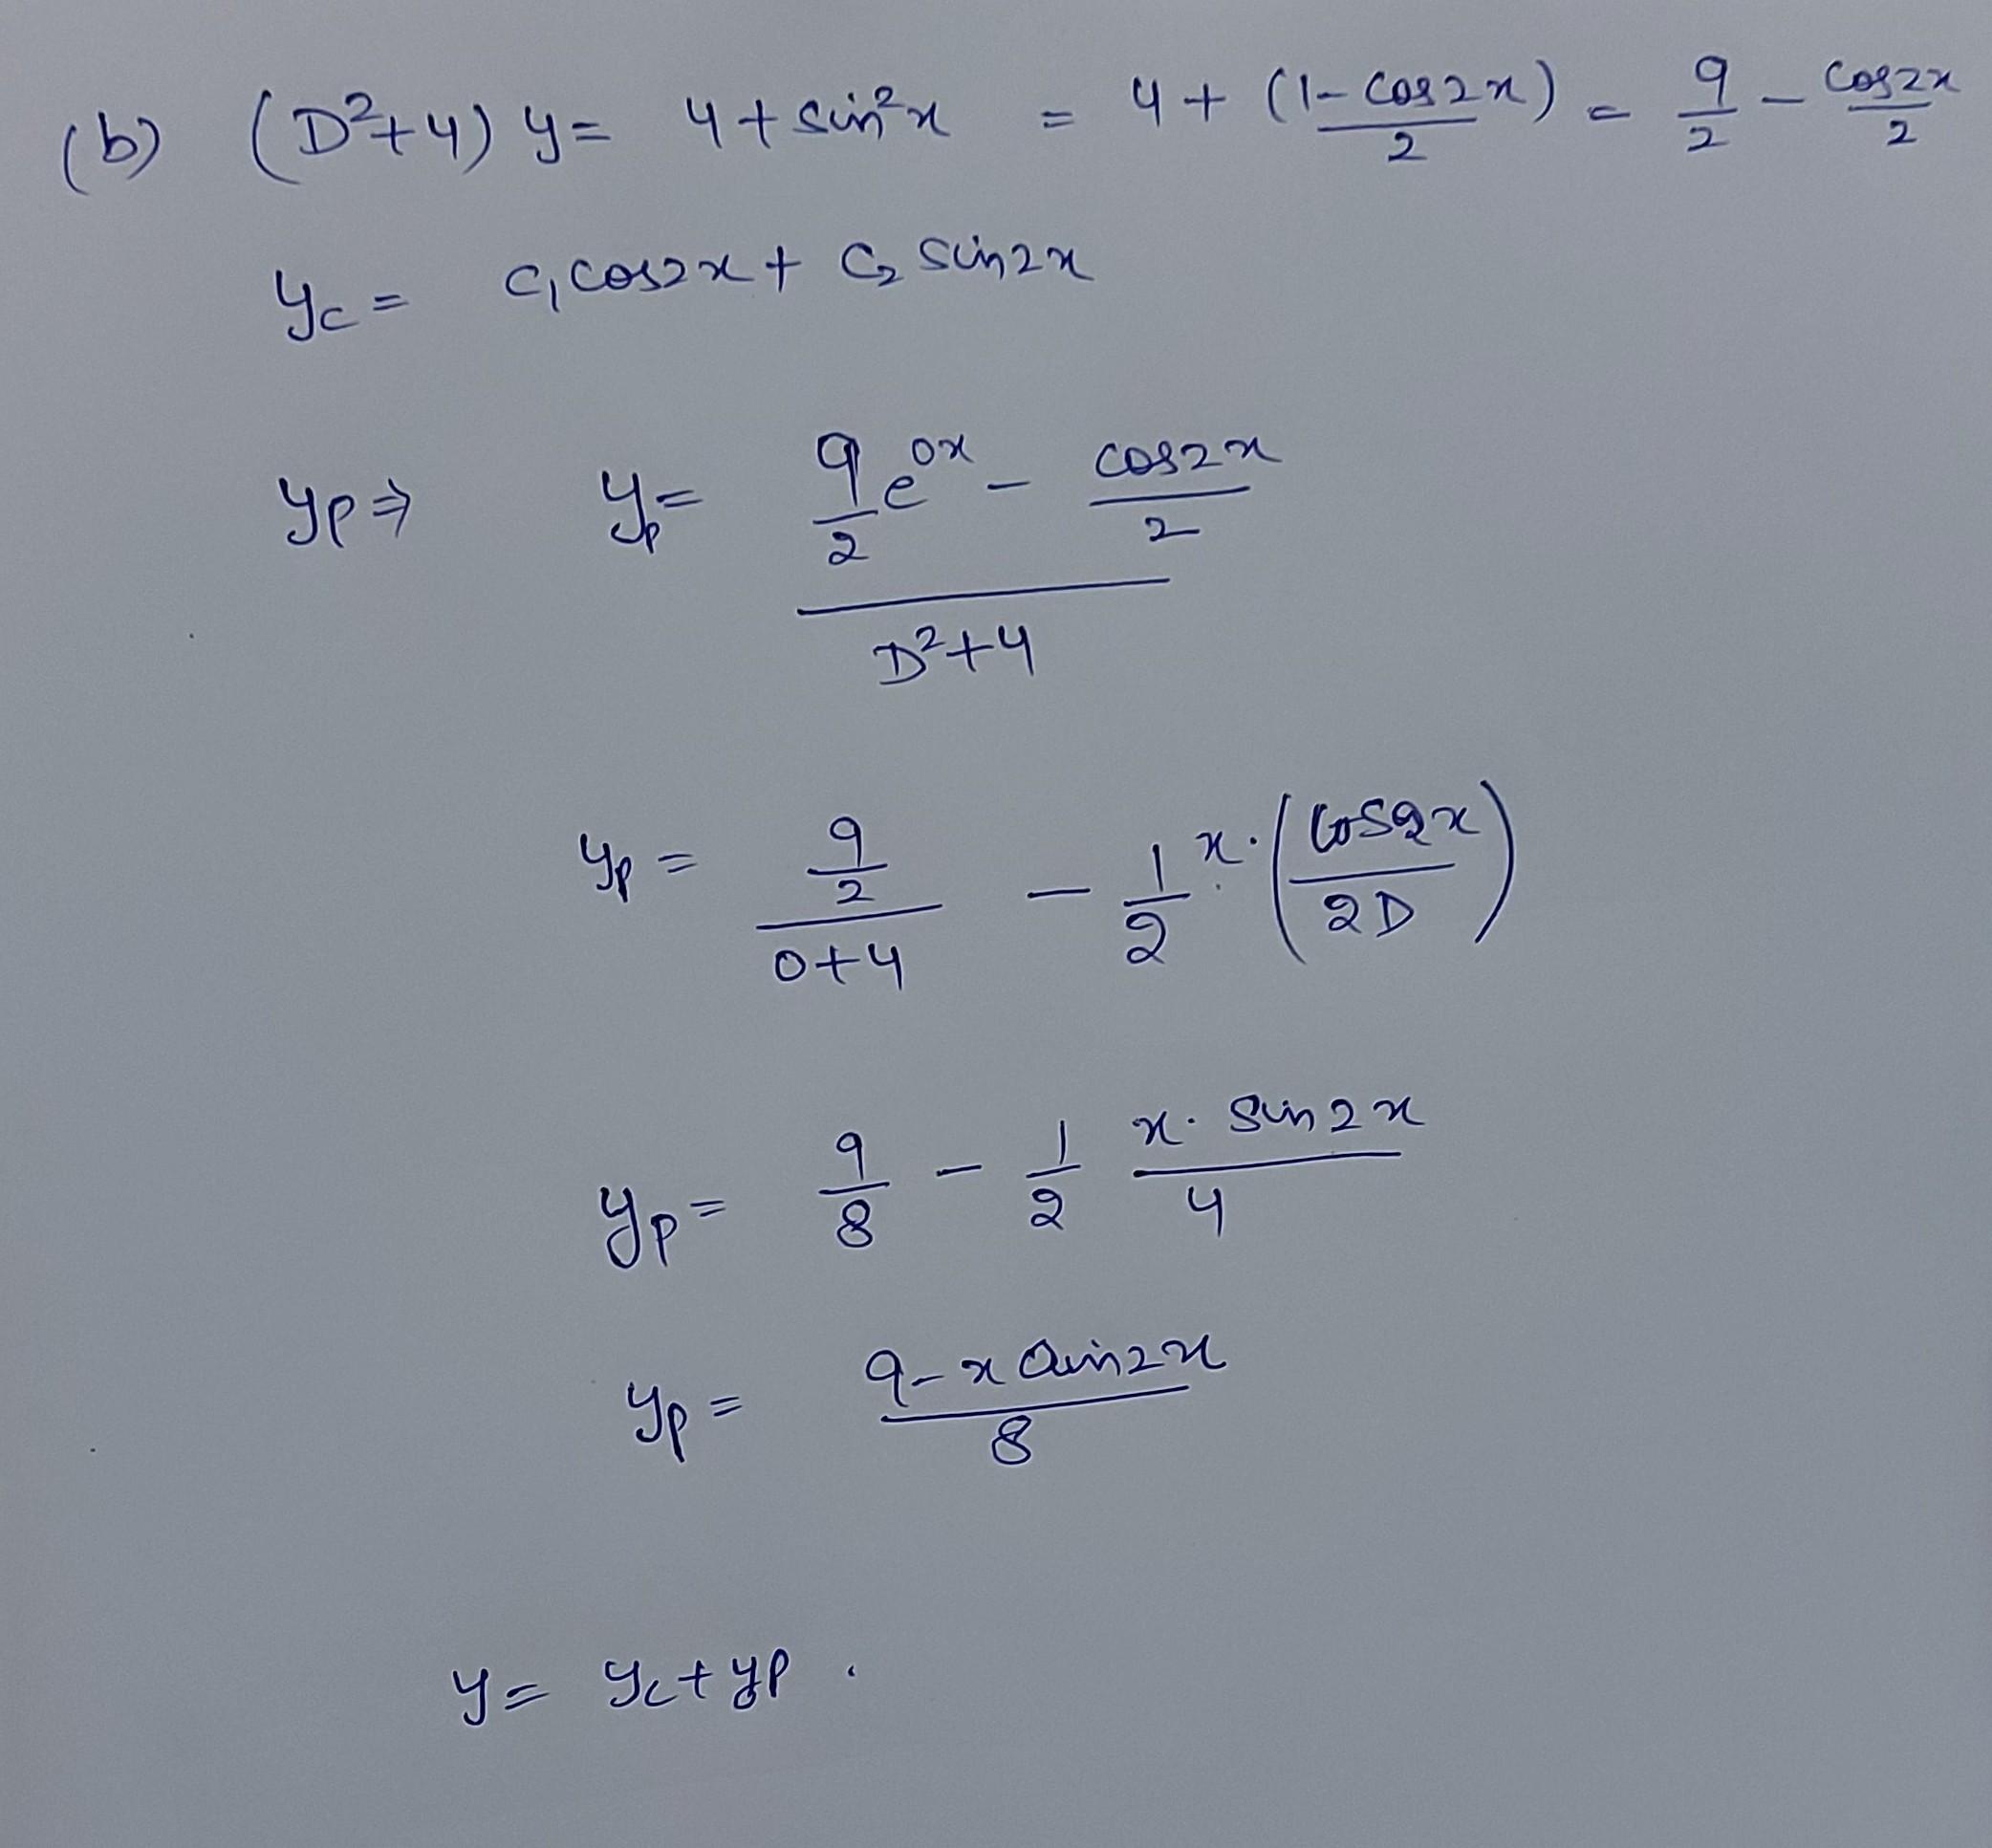 (b) (D²+4) y = 4 + sin²x = 4 + (1-cos2x)/2 = 9/2 - cos2x/2
yc = c₁cos2x + c₂ sin2x
yp ⇒ yp = (9/2 e^0x - cos2x/2)/(D²+4)
yp = (9/2)/(0+4) - 1/2 x·(cos2x/2D)
yp = 9/8 - 1/2 x·sin2x/4
yp = (9 - x sin2x)/8
y = yc + yp .